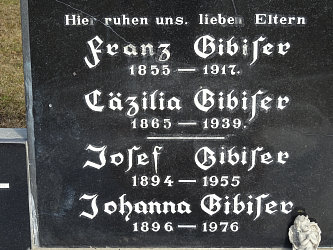 Hier ruhen uns. lieben Eltern
Franz Gibiser
1855 — 1917.
Cäzilia Gibiser
1865 — 1939.
Josef Gibiser
1894 — 1955
Johanna Gibiser
1896 — 1976